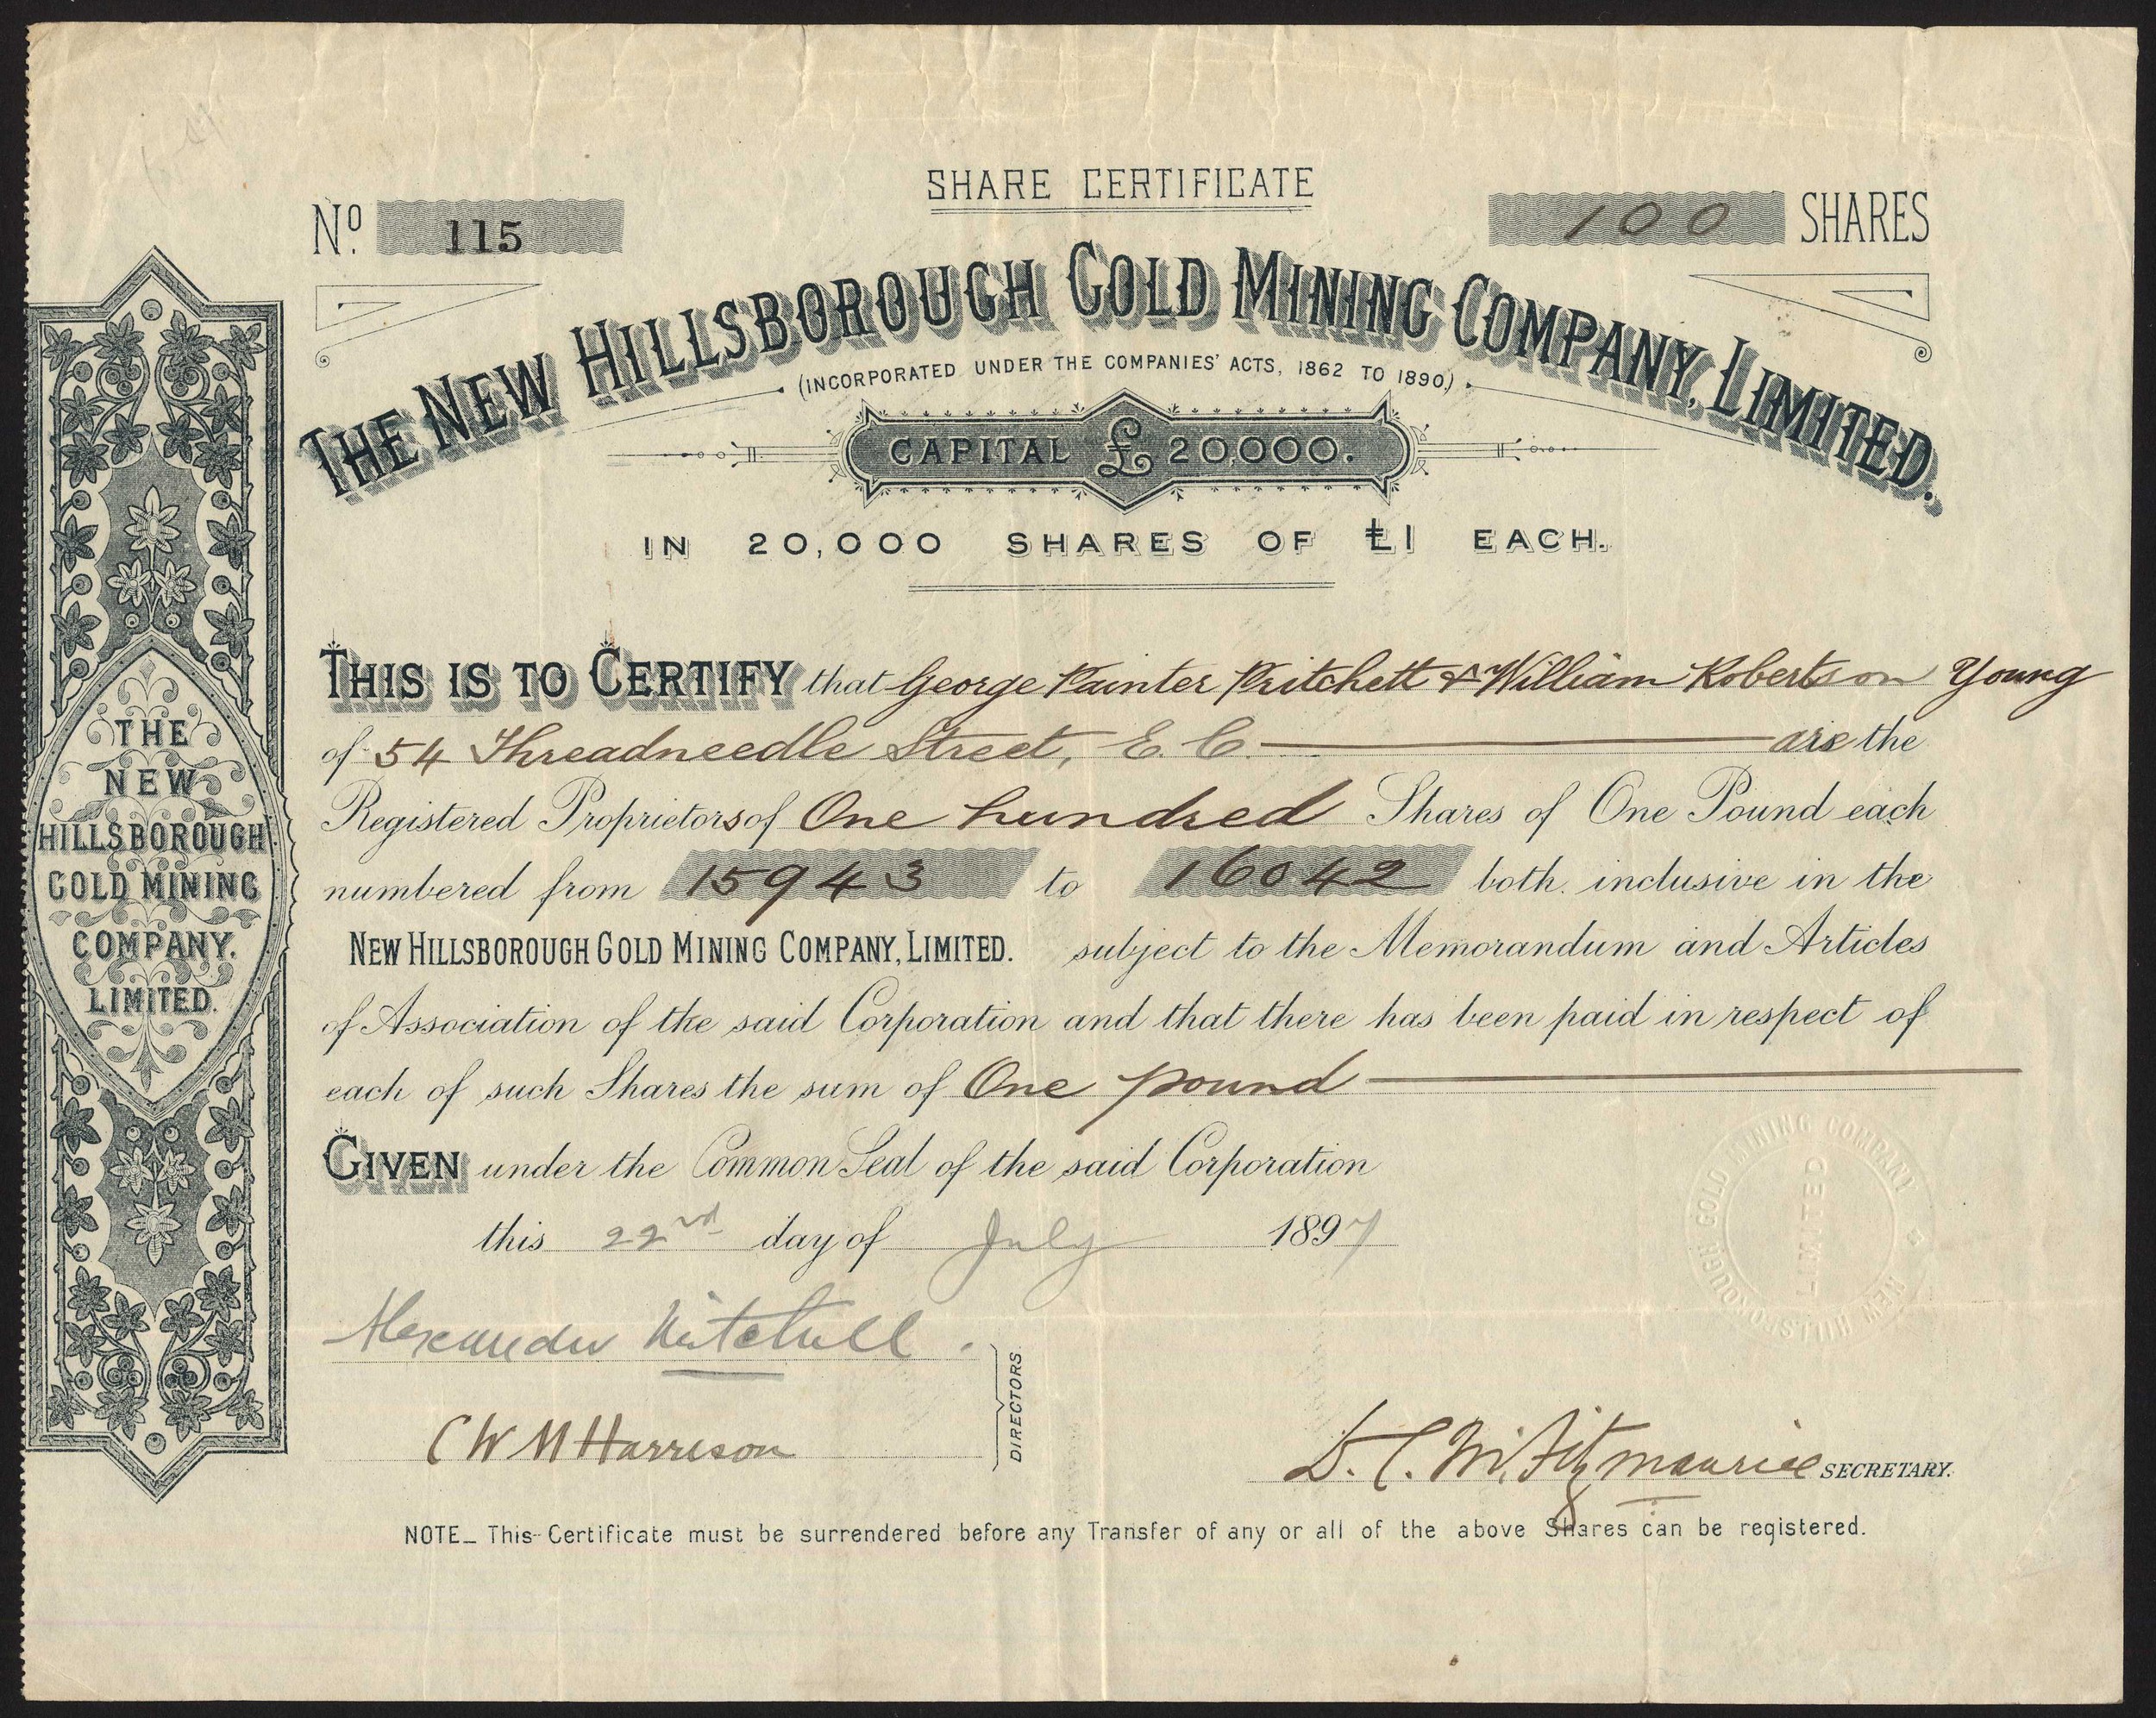 SHARE CERTIFICATE
No. 115
100 SHARES
THE NEW HILLSBOROUGH GOLD MINING COMPANY, LIMITED.
(INCORPORATED UNDER THE COMPANIES' ACTS, 1862 TO 1890.)
CAPITAL £20,000.
IN 20,000 SHARES OF £1 EACH.
THIS IS TO CERTIFY that George Painter Pritchett & William Robertson Young
of 54 Threadneedle Street, E.C. are the
Registered Proprietors of One hundred Shares of One Pound each
numbered from 15943 to 16042 both inclusive in the
NEW HILLSBOROUGH GOLD MINING COMPANY, LIMITED. subject to the Memorandum and Articles
of Association of the said Corporation and that there has been paid in respect of
each of such Shares the sum of One pound
GIVEN under the Common Seal of the said Corporation
this 22nd day of July 1897
Alexander Mitchell.
C W M Harrison
DIRECTORS.
D. C. M. Fitzmaurice SECRETARY.
NOTE_ This Certificate must be surrendered before any Transfer of any or all of the above Shares can be registered.
THE
NEW
HILLSBOROUGH
GOLD MINING
COMPANY.
LIMITED.
NEW HILLSBOROUGH GOLD MINING COMPANY
LIMITED